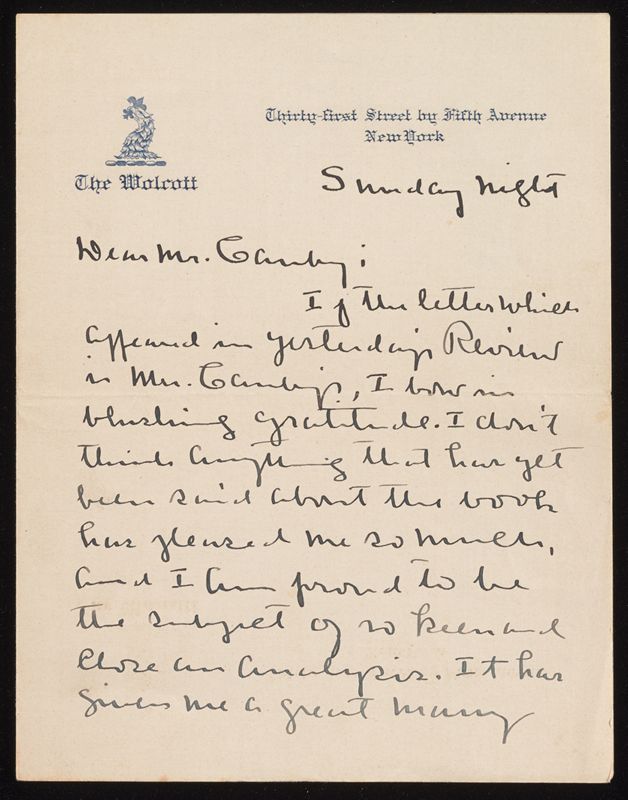 Thirty-first Street by Fifth Avenue
New York
The Wolcott
Sunday night
Dear Mr. Canby:
If the letter which
appeared in yesterday's Review
is Mrs. Canby's, I bow in
blushing gratitude. I don't
think anything that has yet
been said about the book
has pleased me so much,
and I am proud to be
the subject of so keen and
close an analysis. It has
given me a great many